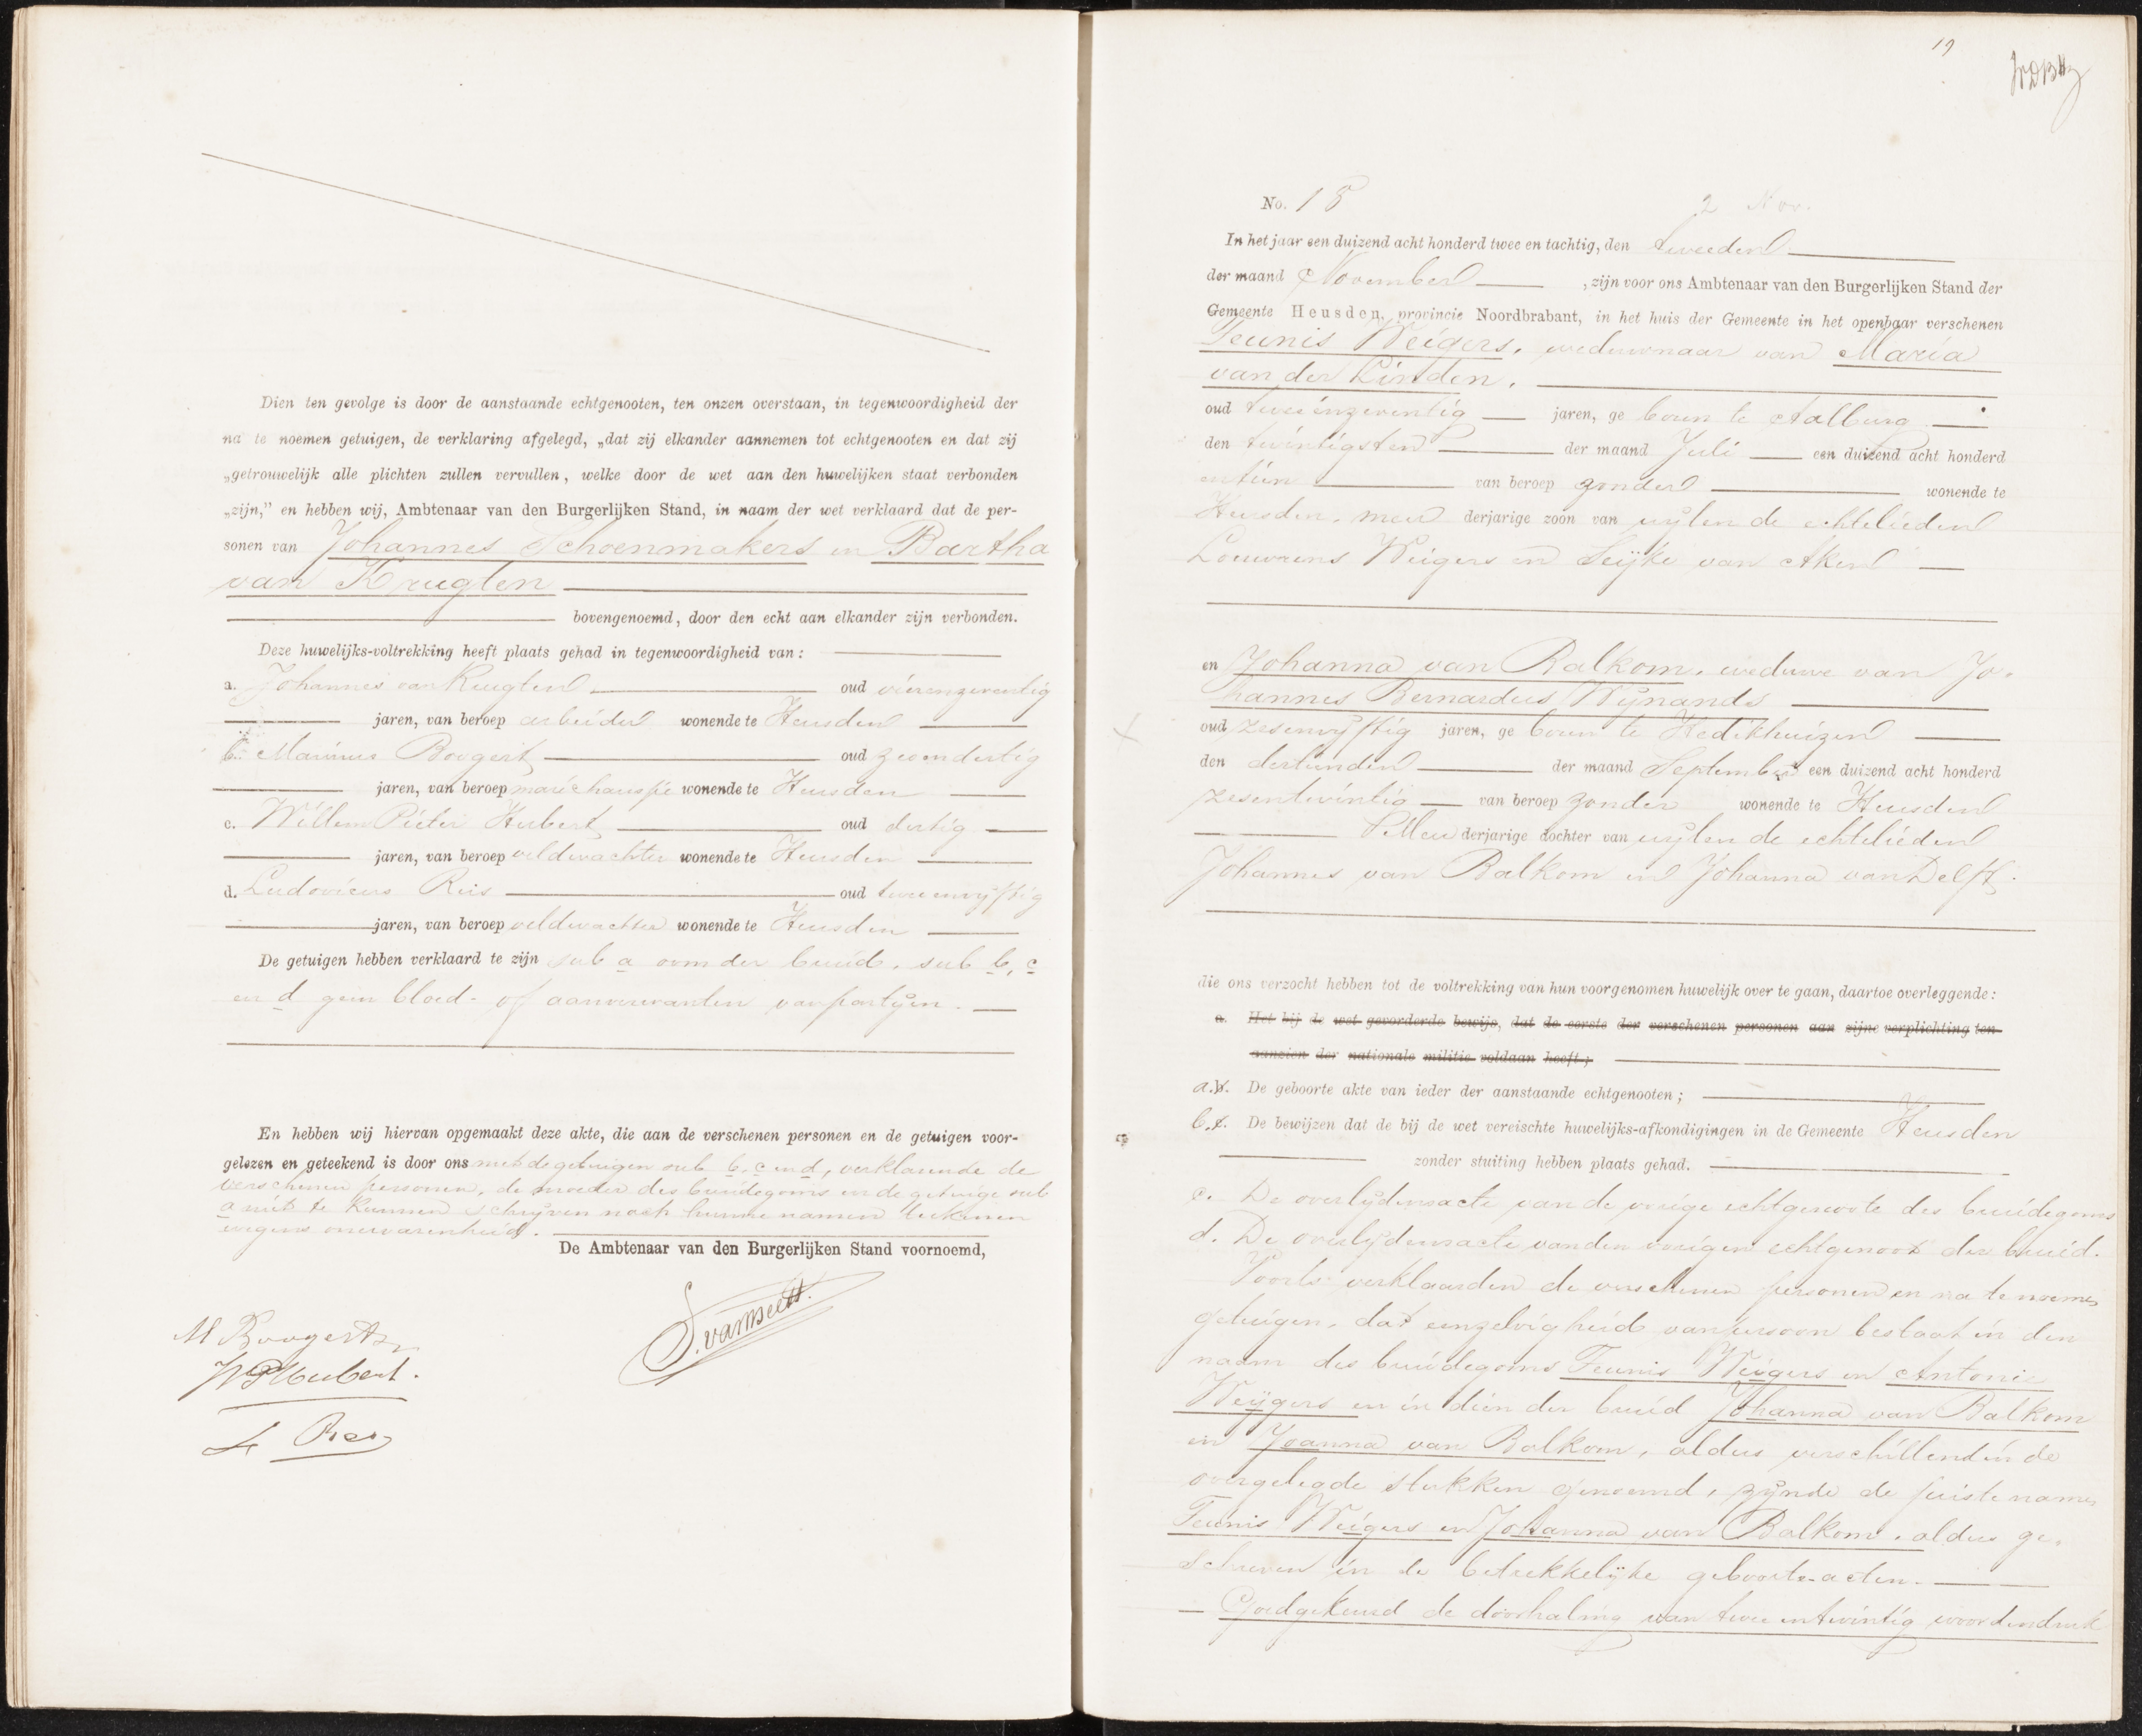 Dien ten gevolge is door de aanstaande echtgenooten, ten onzen overstaan, in tegenwoordigheid der
na te noemen getuigen, de verklaring afgelegd, „dat zij elkander aannemen tot echtgenooten en dat zij
„getrouwelijk alle plichten zullen vervullen, welke door de wet aan den huwelijken staat verbonden
„zijn,” en hebben wij, Ambtenaar van den Burgerlijken Stand, in naam der wet verklaard dat de per-
sonen van Johannes Schoenmakers en Bartha
van Krugten
bovengenoemd, door den echt aan elkander zijn verbonden.
Deze huwelijks-voltrekking heeft plaats gehad in tegenwoordigheid van:
a. Johannes van Krugten oud vierenzeventig
jaren, van beroep arbeider wonende te Heusden
b. Marinus Boogert oud
jaren, van beroep maréchaussée wonende te Heusden
c. Willem Pieter Hubert oud dertig
jaren, van beroep veldwachter wonende te Heusden
d. Ludovicus Reis oud tweeenvijftig
jaren, van beroep veldwachter wonende te Heusden
De getuigen hebben verklaard te zijn sub a oom der bruid, sub b, c
en d geen bloed- of aanverwanten van partijen.
En hebben wij hiervan opgemaakt deze akte, die aan de verschenen personen en de getuigen voor-
gelezen en geteekend is door ons met de getuigen sub b, c en d, verklarende de
verschenen personen, de moeder des bruidegoms en de getuige sub
a niet te kunnen schrijven noch hunne namen teekenen
wegens onervarenheid.
De Ambtenaar van den Burgerlijken Stand voornoemd,
M Boogert
WPHubert.
L Reis
19
No. 18
2 Nov.
In het jaar een duizend acht honderd twee en tachtig, den tweeden
der maand November, zijn voor ons Ambtenaar van den Burgerlijken Stand der
Gemeente Heusden, provincie Noordbrabant, in het huis der Gemeente in het openbaar verschenen
Teunis Weigers, weduwnaar van Maria
van der Linden,
oud tweeënzeventig jaren, geboren te Aalburg
den twintigsten der maand Juli een duizend acht honderd
en tien van beroep zonder wonende te
Heusden, meerderjarige zoon van wijlen de echtelieden
Louwrens Weigers en Seijke van Aken
en Johanna van Balkom, weduwe van Jo-
hannes Bernardus Wijnands
oud zesenvijftig jaren, geboren te Hedikhuizen
den dertienden der maand September een duizend acht honderd
zesentwintig van beroep zonder wonende te Heusden
Meerderjarige dochter van wijlen de echtelieden
Johannes van Balkom en Johanna van Delft.
die ons verzocht hebben tot de voltrekking van hun voorgenomen huwelijk over te gaan, daartoe overleggende:
a. Het bij de wet gevorderde bewijs, dat de eerste der verschenen personen aan zijne verplichting ten
aanzien der nationale militie voldaan heeft;
a. b. De geboorte akte van ieder der aanstaande echtgenooten;
b. c. De bewijzen dat de bij de wet vereischte huwelijks-afkondigingen in de Gemeente Heusden
zonder stuiting hebben plaats gehad.
c. De overlijdensacte van de vorige echtgenoote des bruidegoms
d. De overlijdensacte van den vorigen echtgenoot der bruid.
Voorts verklaarden de verschenen personen en na te noemen
getuigen, dat eenzelvigheid van persoon bestaat in den
naam des bruidegoms Teunis Weigers en Antonie
Weijgers en in dien der bruid Johanna van Balkom
en Joanna van Bolkom, aldus verschillend in de
overgelegde stukken genoemd, zijnde de juiste namen
Teunis Weigers en Johanna van Balkom, aldus ge-
schreven in de betrekkelijke geboorte-acten.
Goedgekeurd de doorhaling van twee en twintig woorden druk